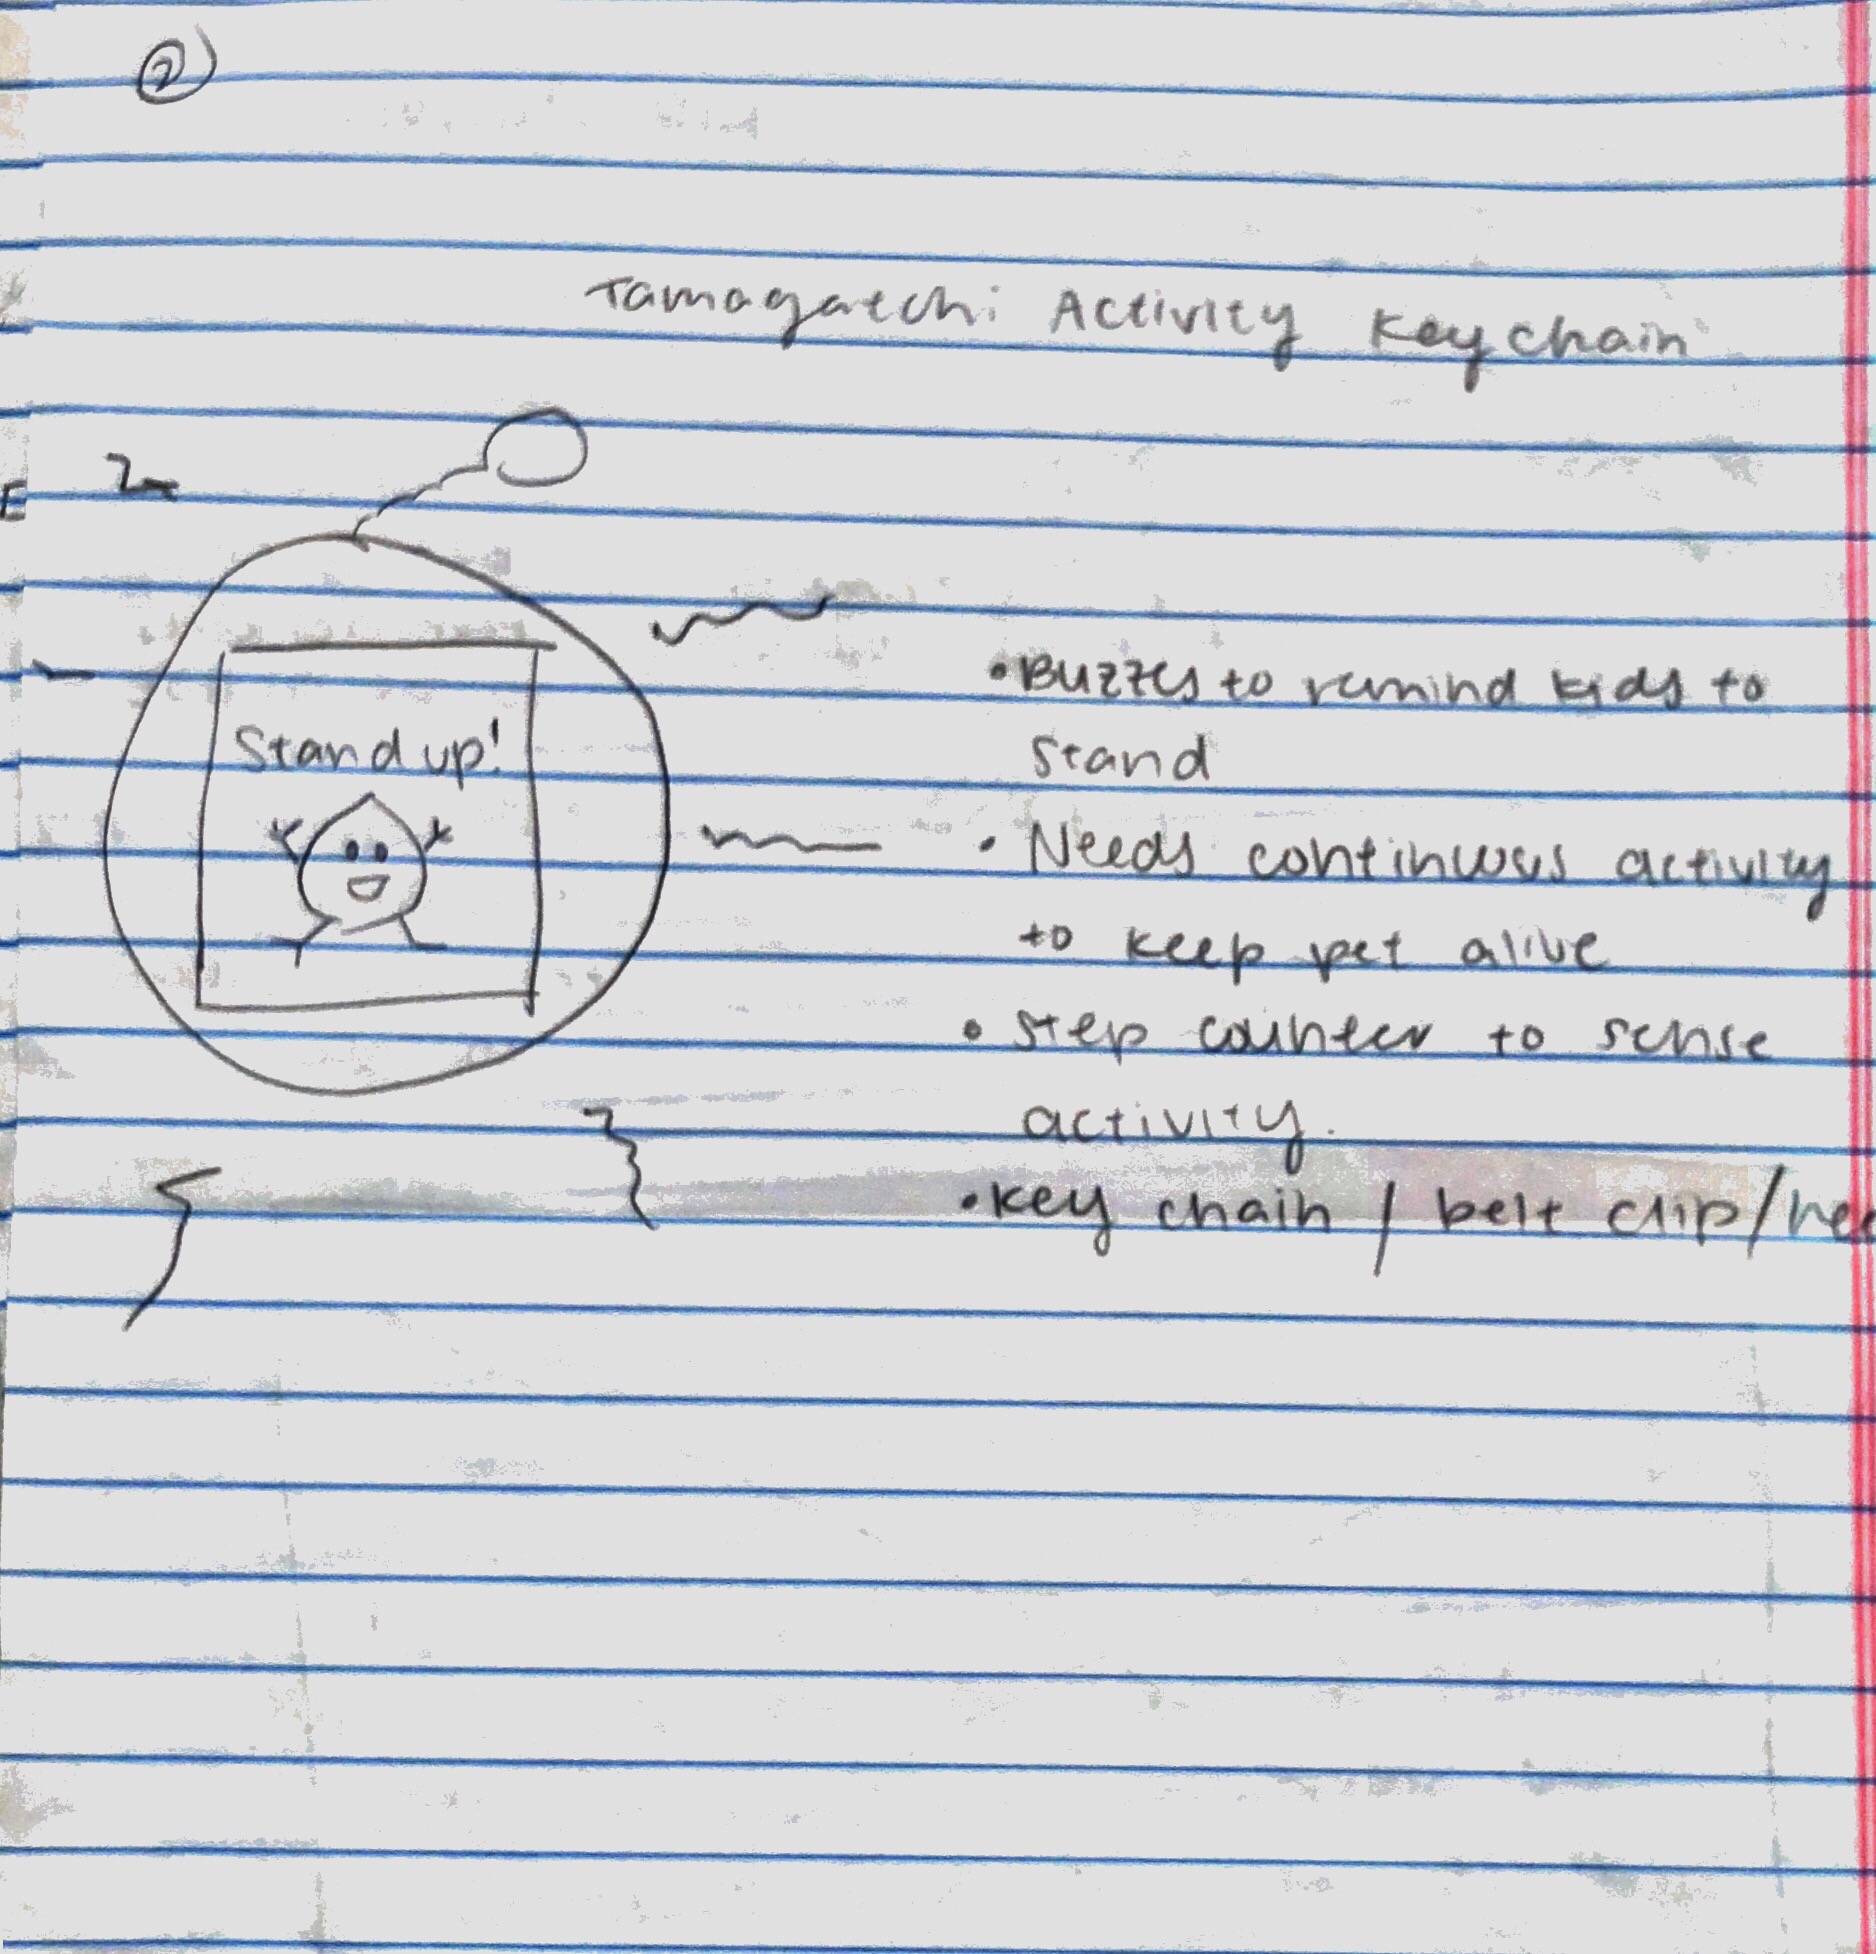 2
Tamagatchi Activity Keychain
Stand up!
• Buzzes to remind kids to
stand
• Needs continuous activity
to keep pet alive
• step counter to sense
activity.
• key chain / belt clip /